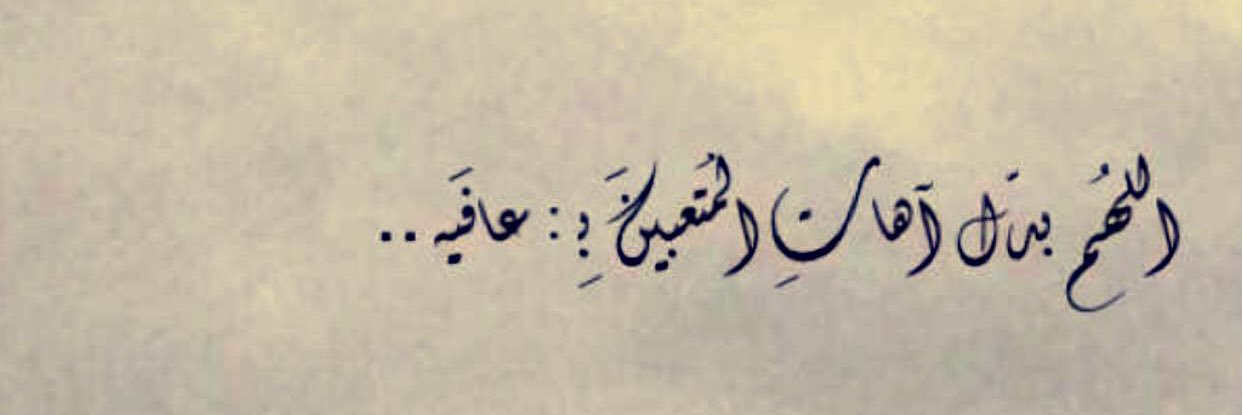 اللهُم بدَل آهاتِ المُتعبينَ بِ: عافَيه ..